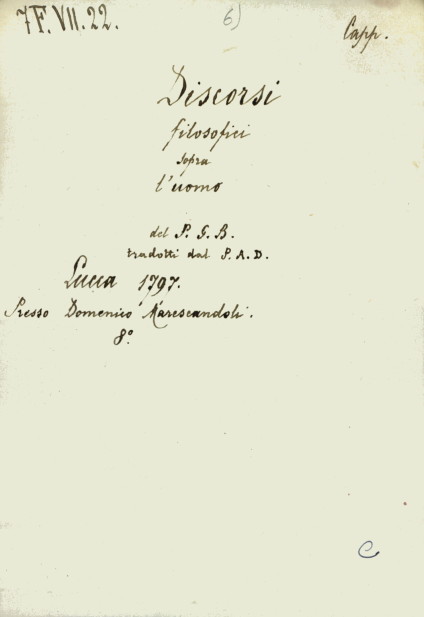 7 F. VII. 22.
6)
Capp.
Discorsi
filosofici
sopra
l'uomo
del P. G. B.
tradotti dal P. A. D.
Lucca 1797.
Presso Domenico Marescandoli.
8º
C